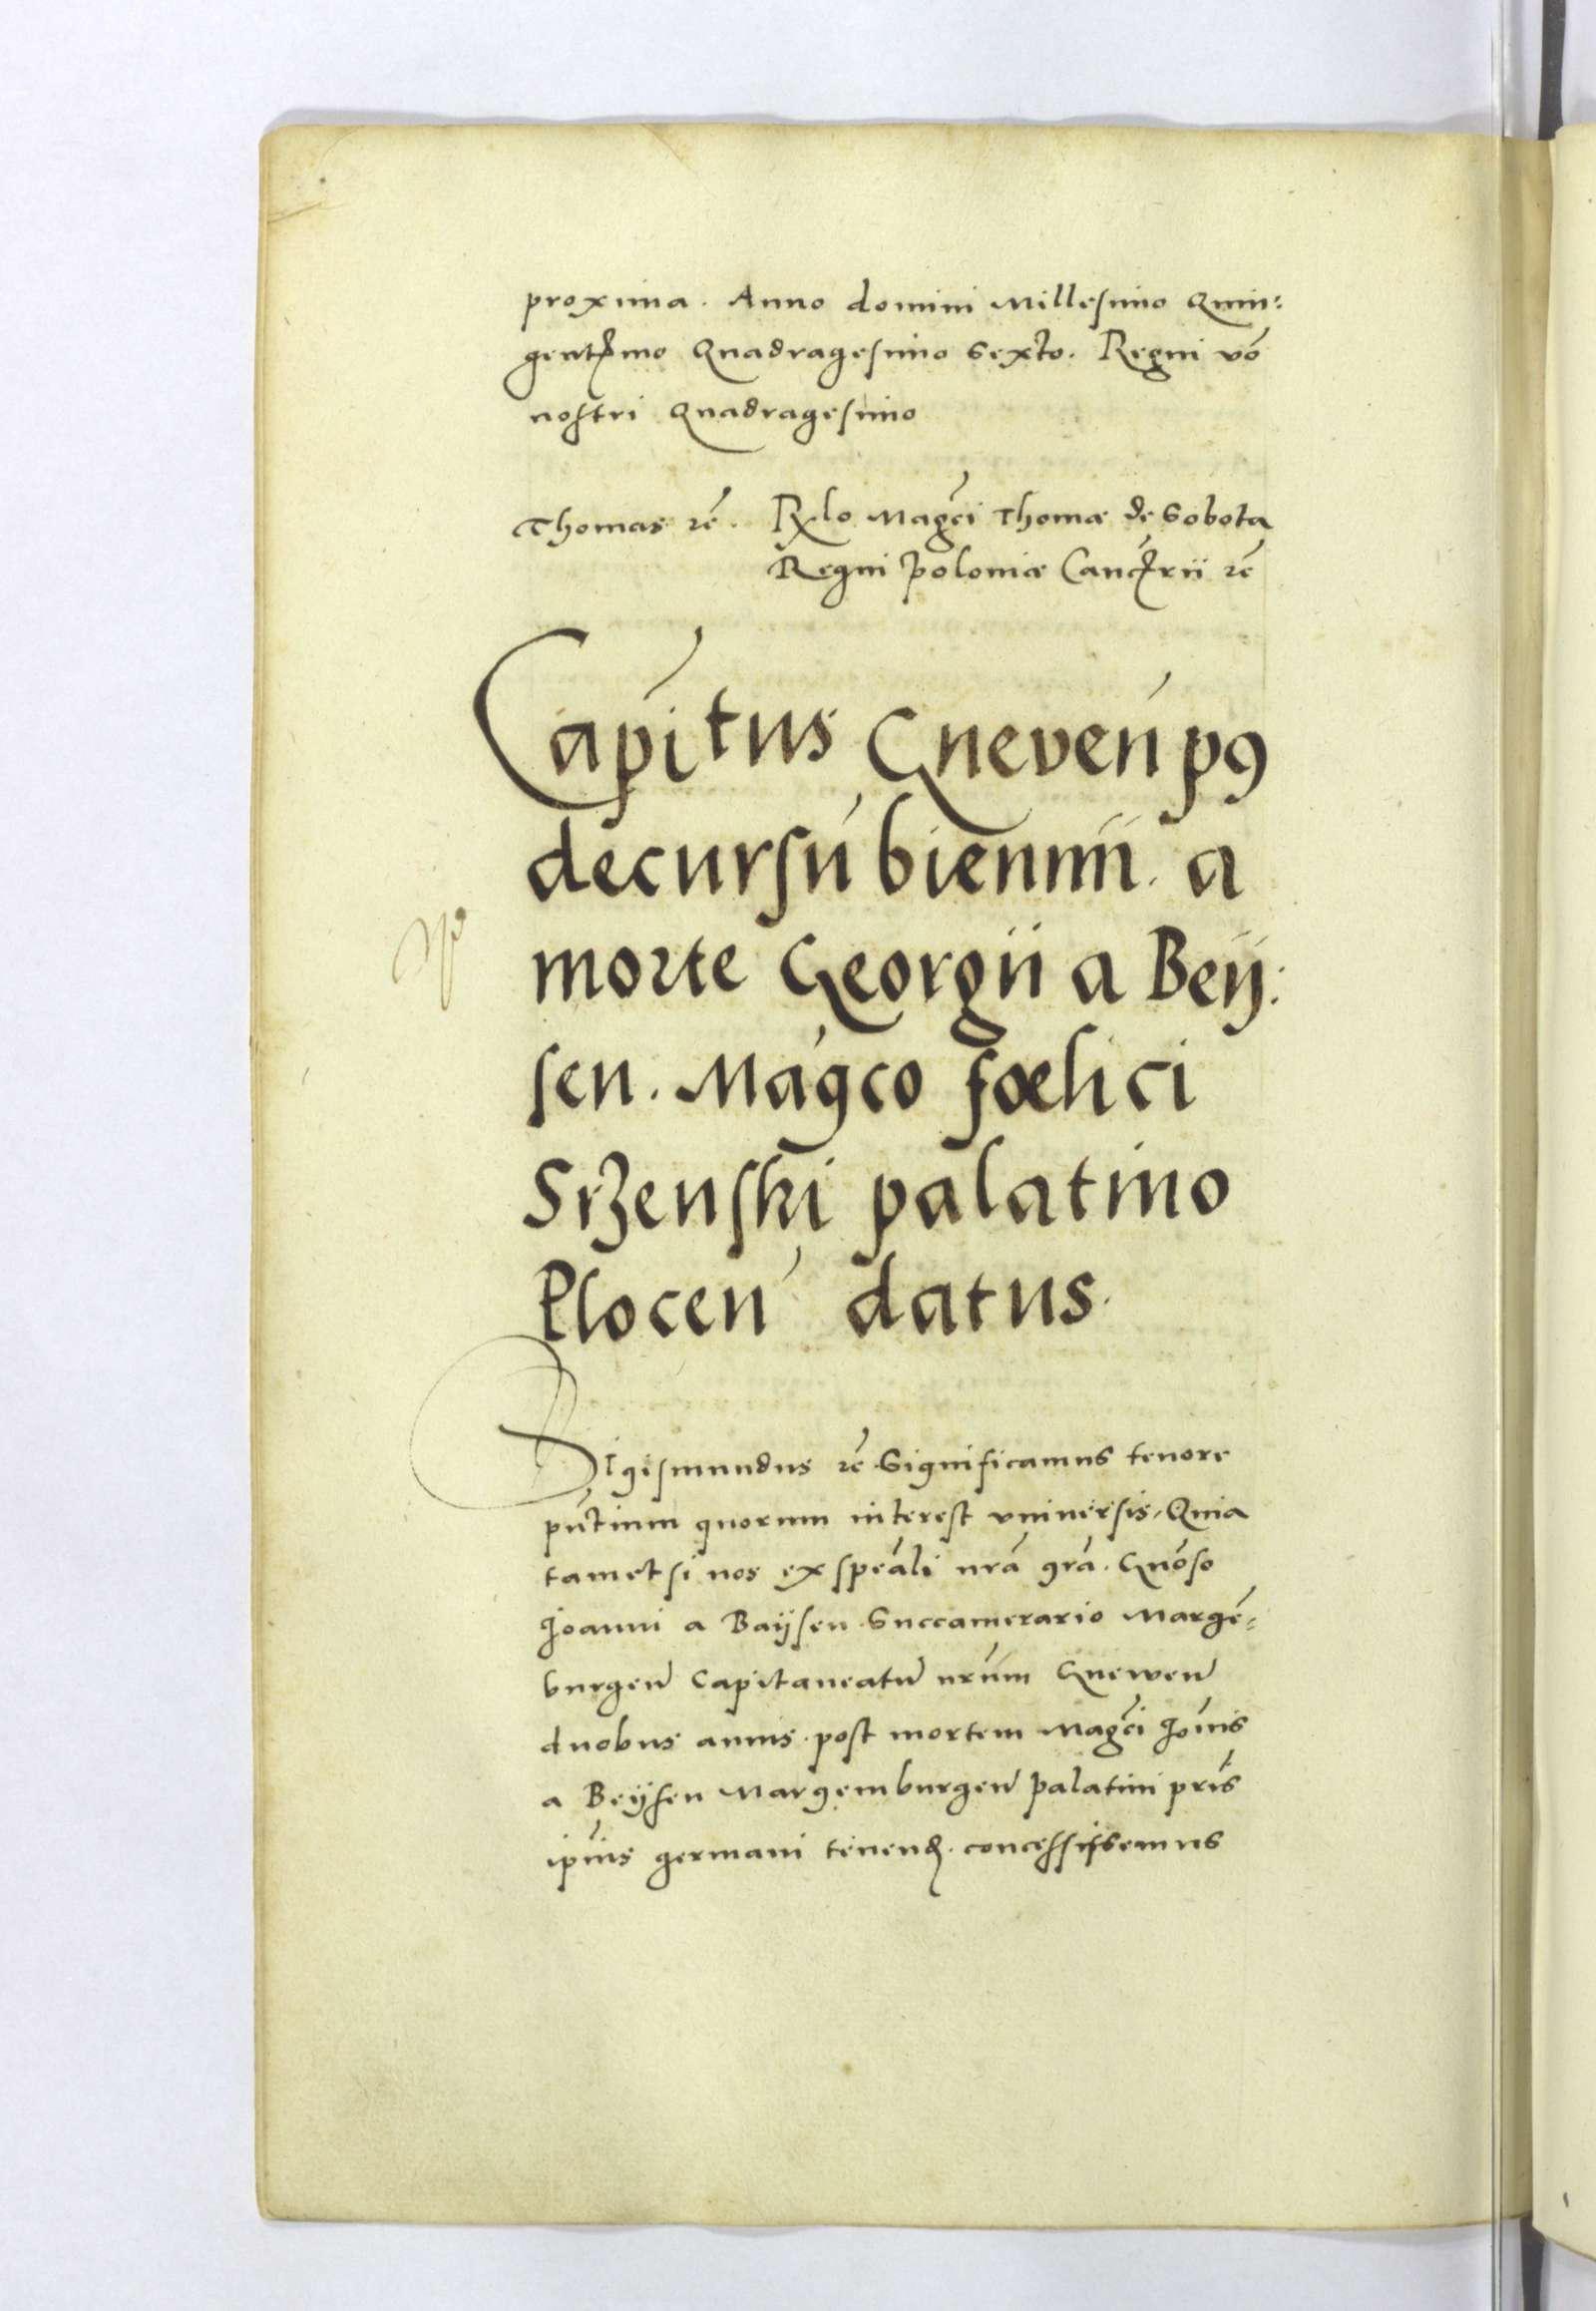 proxima. Anno domini Millesimo Quin:
gentmo Quadragesimo Sexto. Regni vo
nostri Quadragesimo
Thomas rc̃. Rlo Magci Thomæ de Sobota
Regni poloniæ Cancrii rc̃
Capitus Gneven̄ p9
decursu bienni. a
morte Georgii a Beÿ:
sen. Magco fœlici
Srzenski palatino
Plocen̄ datus.
Sigismundus rc̃ Significamus tenore
pñtium quorum interest universis, Quia
tametsi nos ex spẽali nrã grã. Gnõso
Joanni a Baÿsen Succamerario Margẽ:
burgen̄ Capitaneatū nrũm Gnewen̄
duobus annis. post mortem Magci Joñis
a Beÿsen Margemburgen̄ palatini pris
ipius germani tenend. concessissemus